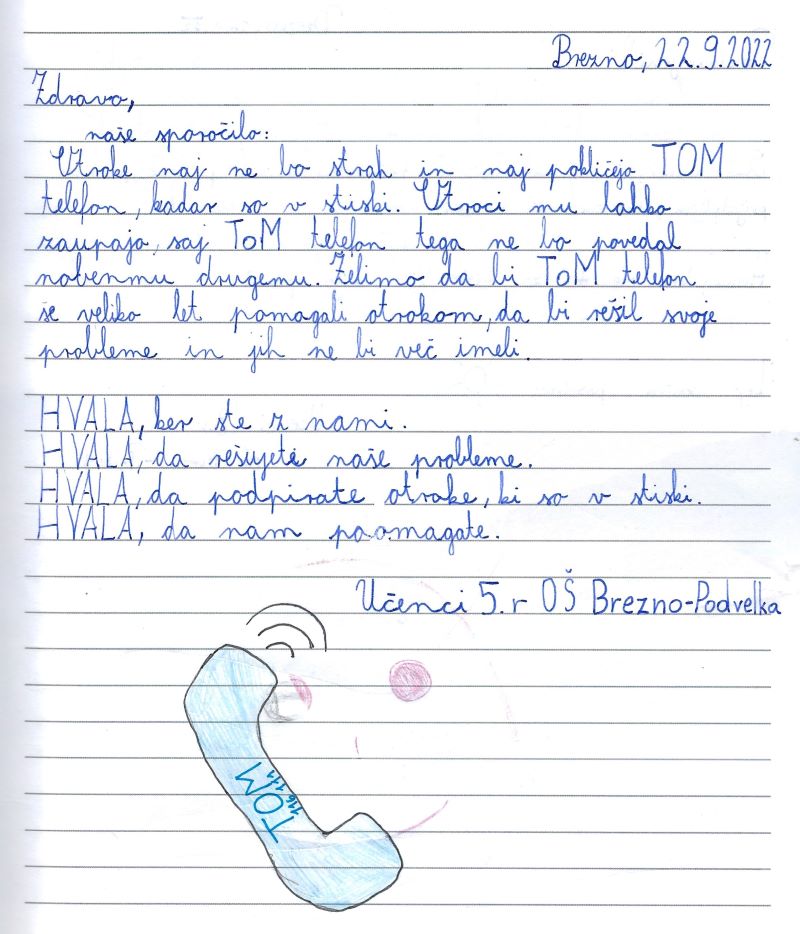 Brezno, 22.9.2022
Zdravo,
naše sporočilo:
Otroke naj ne bo strah in naj pokličejo TOM
telefon, kadar so v stiski. Otroci mu lahko
zaupajo, saj ToM telefon tega ne bo povedal
nobenmu drugemu. Želimo da bi ToM telefon
še veliko let pomagali otrokom, da bi rešil svoje
probleme in jih ne bi več imeli.
HVALA, ker ste z nami.
HVALA, da rešujete naše probleme.
HVALA, da podpirate otroke, ki so v stiski.
HVALA, da nam poomagate.
Učenci 5. r OŠ Brezno-Podvelka
TOM
116 111